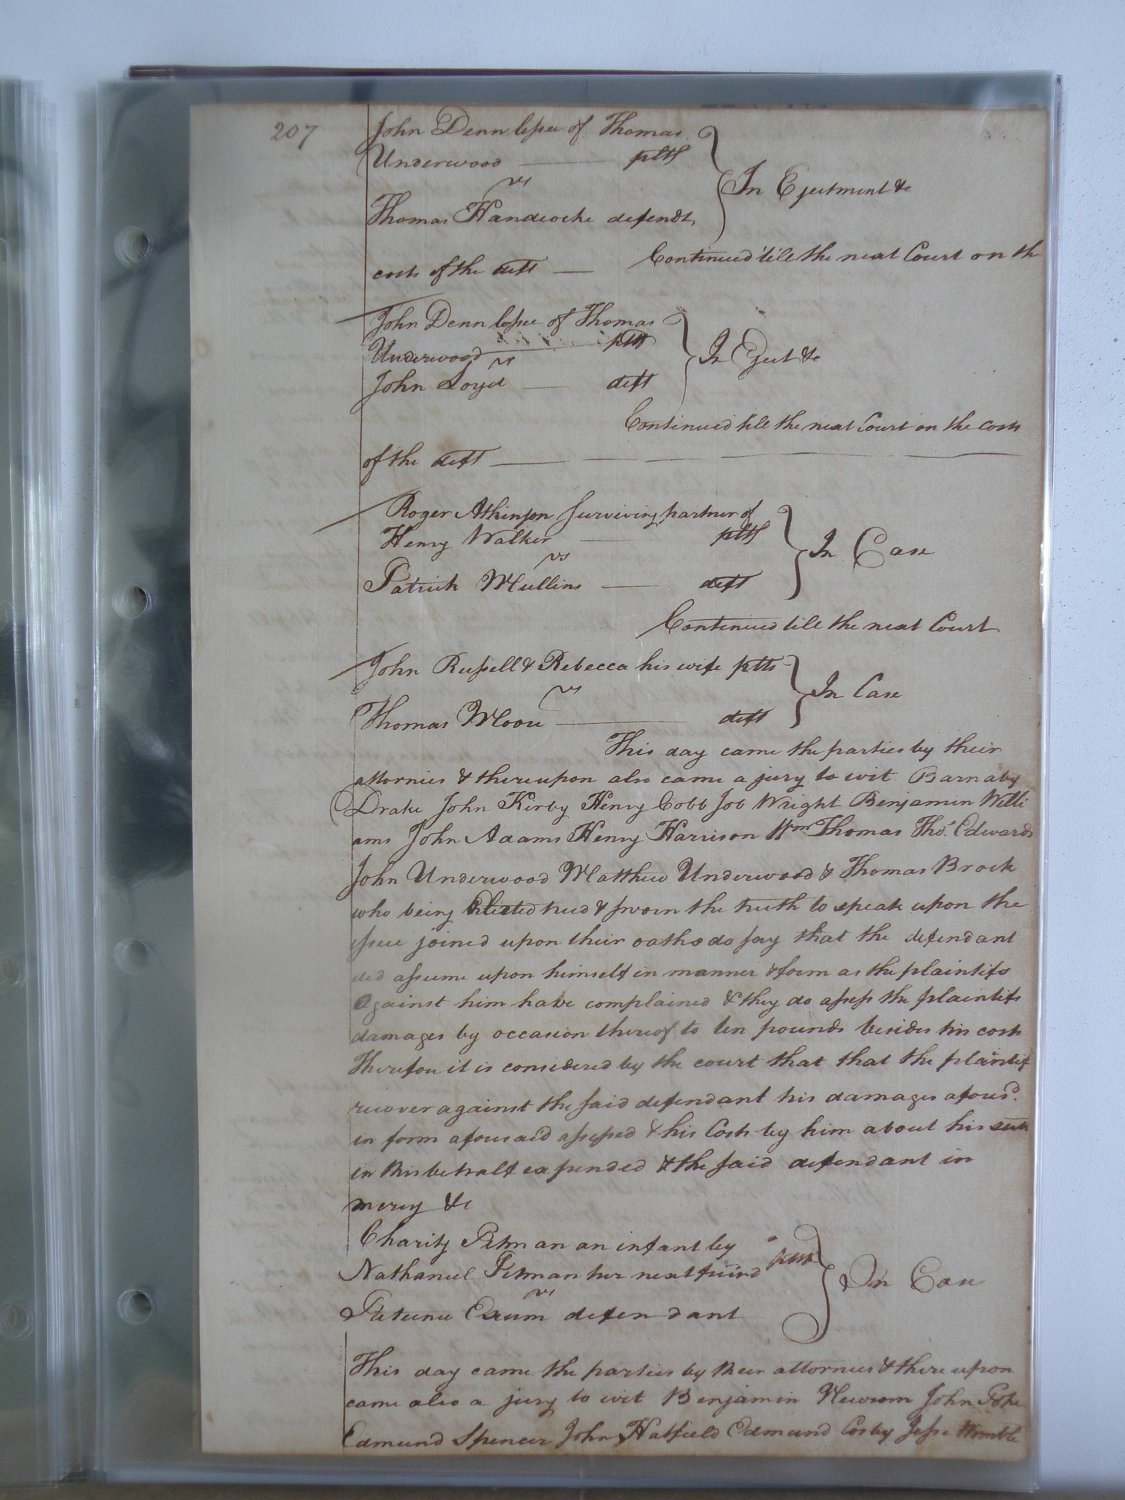 207
John Denn lessee of Thomas
Underwood pltf
vs
In Ejectment &c
Thomas Handcocke defendt,
Continued till the next Court on th
costs of the deft
John Denn lessee of Thomas
Underwood pltf
vs
In Eject &c
John Loyd deft
Continued till the next Court on the costs
of the deft
Roger Atkinson Surviving partner of
Henry Walker pltf
vs
In Case
Patrick Mullins deft
Continued till the next Court
John Russell & Rebecca his wife plts
vs
In Case
Thomas Moore deft
This day came the parties by their
attornies & thereupon also came a jury to wit Barnaby
Drake John Kirby Henry Cobb Job Wright Benjamin Willi
ams John Adams Henry Harrison Wm Thomas Tho.s Edwards
John Underwood Matthew Underwood & Thomas Brock
who being Elected tried & sworn the truth to speak upon the
issue joined upon their oaths do say that the defendant
did assume upon himself in manner & form as the plaintifs
against him have complained & they do assess the plaintifs
damages by occasion thereof to ten pounds besides his costs
Therefore it is considered by the court that that the plaintif
recover against the said defendant his damages afores.d
in form aforesaid assessed & his Costs by him about his suit
in this behalf expended & the said defendant in
mercy &c
Charity Pitman an infant by
Nathaniel Pitman her next friend
vs
In Case
Patience Exum defendant
This day came the parties by their attornies & thereupon
came also a jury to wit Benjamin Newsom John Pope
Edmund Spencer John Hatfield Edmund Cosby Jesse Womble